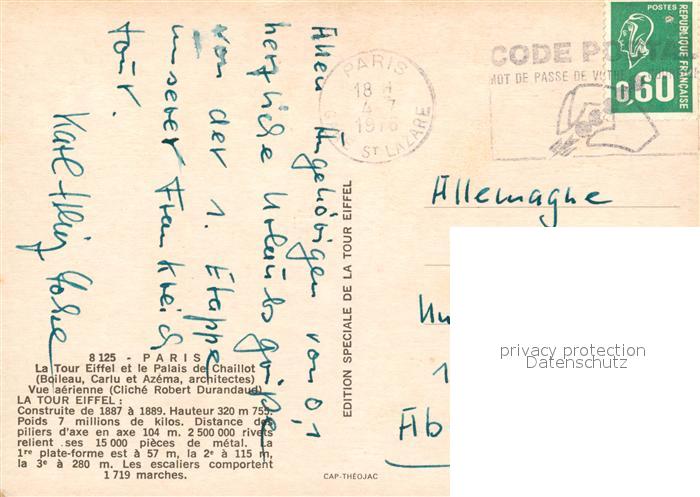 Allen Angehörigen von 0,1
herzliche Urlaubsgrüße
von der 1. Etappe
unserer Frankreich
tour.
Karl-Heinz
PARIS
18 H
4-7
1976
ST LAZARE
CODE POSTAL
MOT DE PASSE DE VOTRE
POSTES
REPUBLIQUE FRANÇAISE
0,60
EDITION SPECIALE DE LA TOUR EIFFEL
Allemagne
privacy protection
Datenschutz
8 125 - PARIS
La Tour Eiffel et le Palais de Chaillot
(Boileau, Carlu et Azéma, architectes)
Vue aérienne (Cliché Robert Durandaud)
LA TOUR EIFFEL :
Construite de 1887 à 1889. Hauteur 320 m 755.
Poids 7 millions de kilos. Distance des
piliers d'axe en axe 104 m. 2 500 000 rivets
relient ses 15 000 pièces de métal. La
1re plate-forme est à 57 m, la 2e à 115 m,
la 3e à 280 m. Les escaliers comportent
1 719 marches.
CAP-THÉOJAC